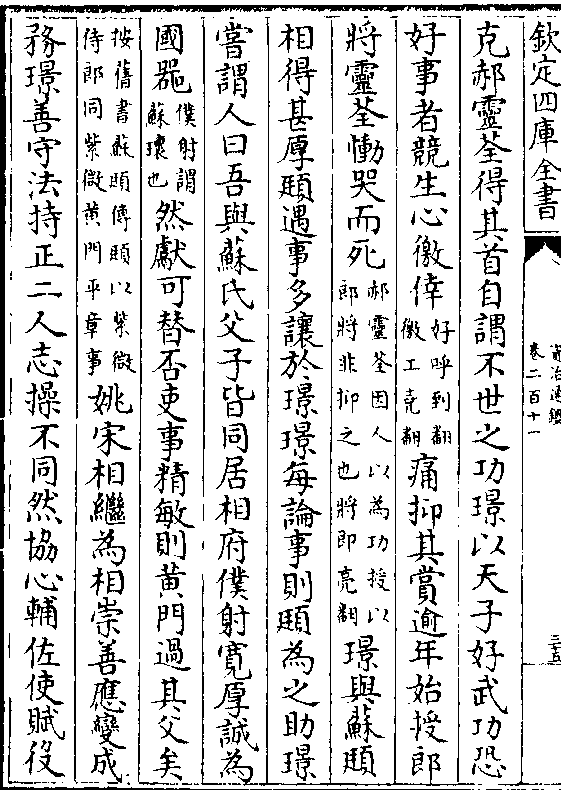 欽定四庫全書
資治通鑑
卷二百十一
三五
克郝靈荃得其首自謂不世之功璟以天子好武功恐
好事者競生心徼倖好呼到翻徼工堯翻痛抑其賞逾年始授郎
將靈荃慟哭而死郝靈荃因人以為功授以郎將非抑之也將即亮翻璟與蘇頲
相得甚厚頲遇事多讓於璟璟每論事則頲為之助璟
嘗謂人曰吾與蘇氏父子皆同居相府僕射寬厚誠為
國器僕射謂蘇瓌也然獻可替否吏事精敏則黄門過其父矣
按舊書蘇頲傳頲以紫微侍郎同紫微黄門平章事姚宋相繼為相崇善應變成
務璟善守法持正二人志操不同然協心輔佐使賦役